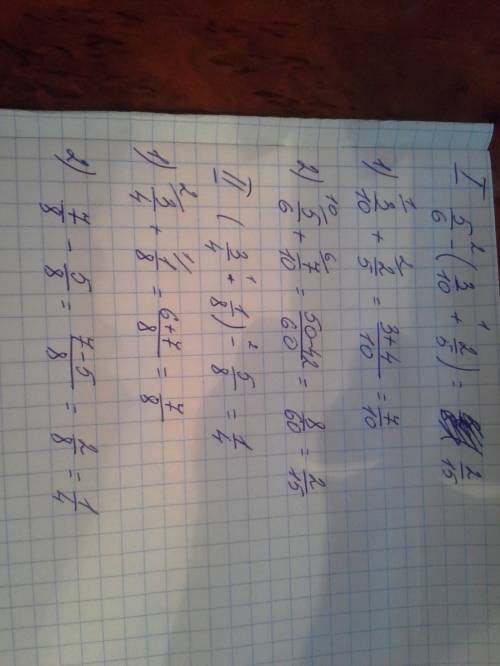 I 5/6 -² (3/10 +¹ 2/5) = 2/15
1) ¹3/10 + ²2/5 = 3+4/10 = 7/10
2) ¹⁰5/6 + ⁶7/10 = 50-42/60 = 8/60 = 2/15
II (3/4 +¹ 1/8) -² 5/8 = 1/4
1) ²3/4 + ¹1/8 = 6+7/8 = 7/8
2) 7/8 - 5/8 = 7-5/8 = 2/8 = 1/4